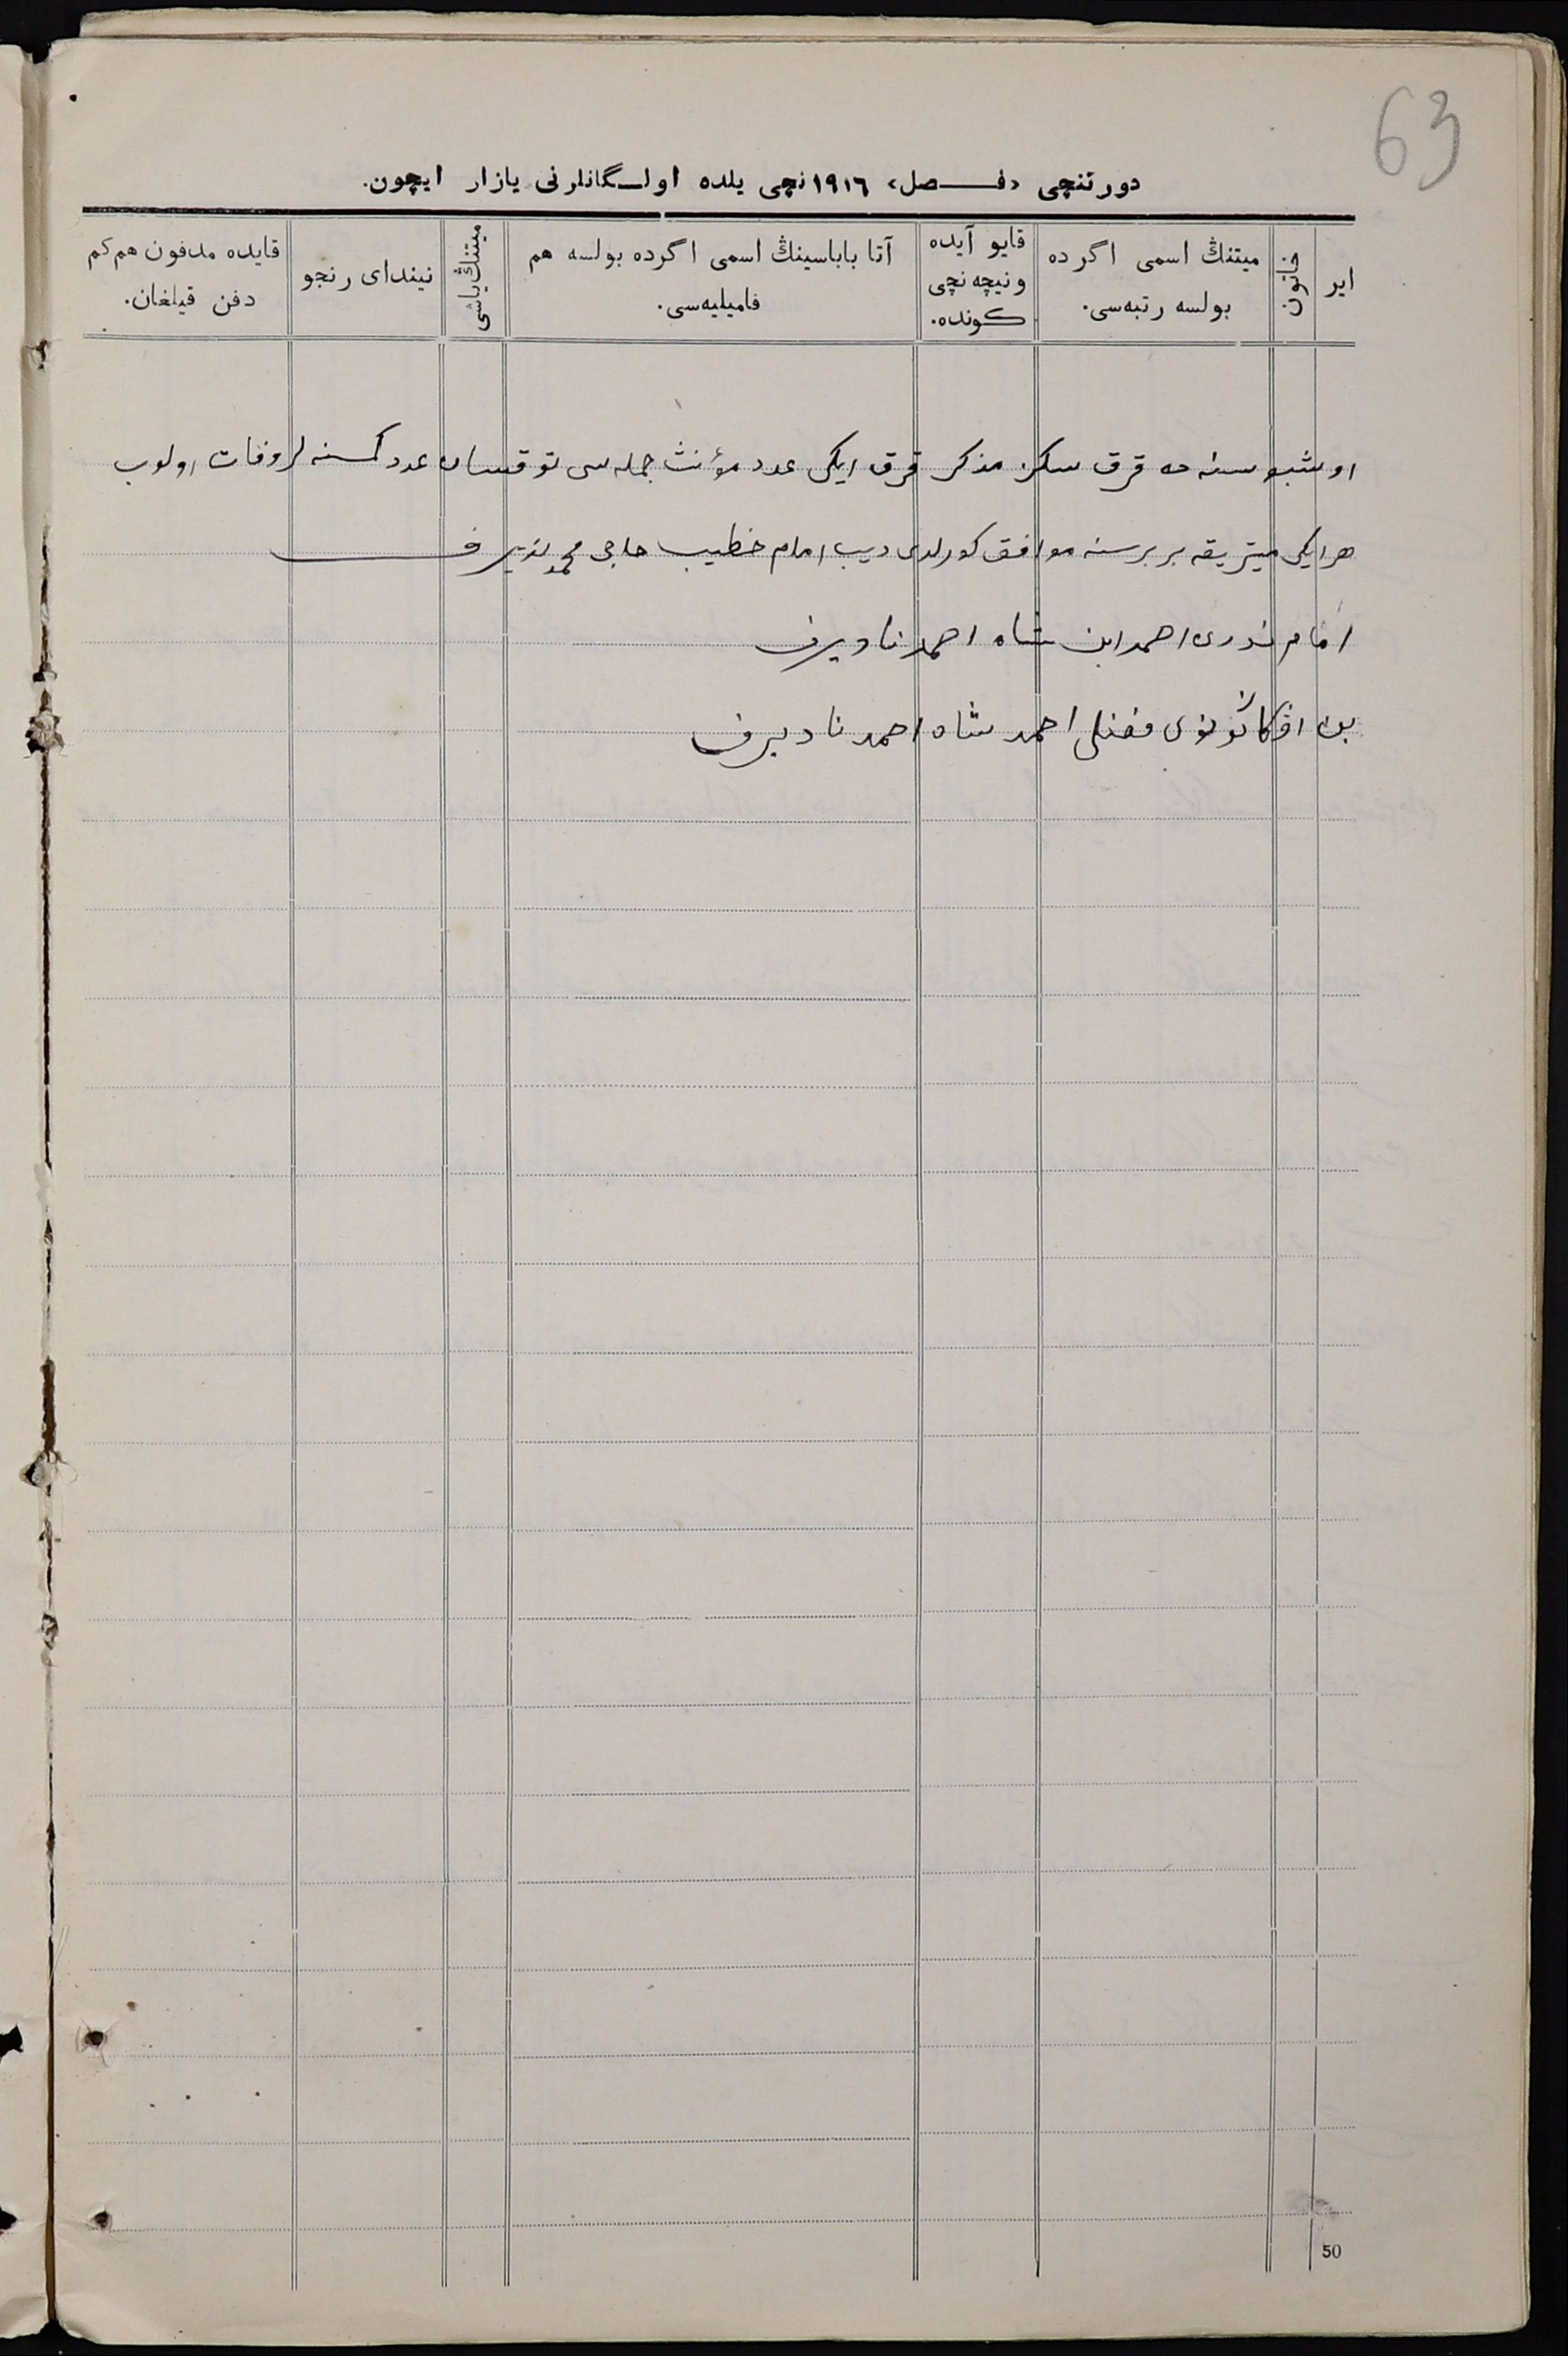 63
دورتنچی «فصل» ١٩١٦ نچی یلده اولگانلرنی یازار ایچون.
ایر
خاتون
میتنڭ اسمی اگرده
بولسه رتبه‌سی.
قایو آیده
ونیچه نچی
کونده.
آتا باباسینڭ اسمی اگرده بولسه هم
فامیلیه‌سی.
میتنڭ یاشی
نیندای رنجو
قایده مدفون هم کم
دفن قیلغان.
اوشبو سنه ده قرق سکز مذکر قرق ایکی عدد مؤنث جمله سی توقسان عدد کمسنه لر وفات اولوب
هر ایکی میتریقه بر برسنه موافق کورلدی دیب امام خطیب حاجی محمد
امام احمد ابن شاه احمد نادیرف
بن احمد شاه احمد نادیرف
50